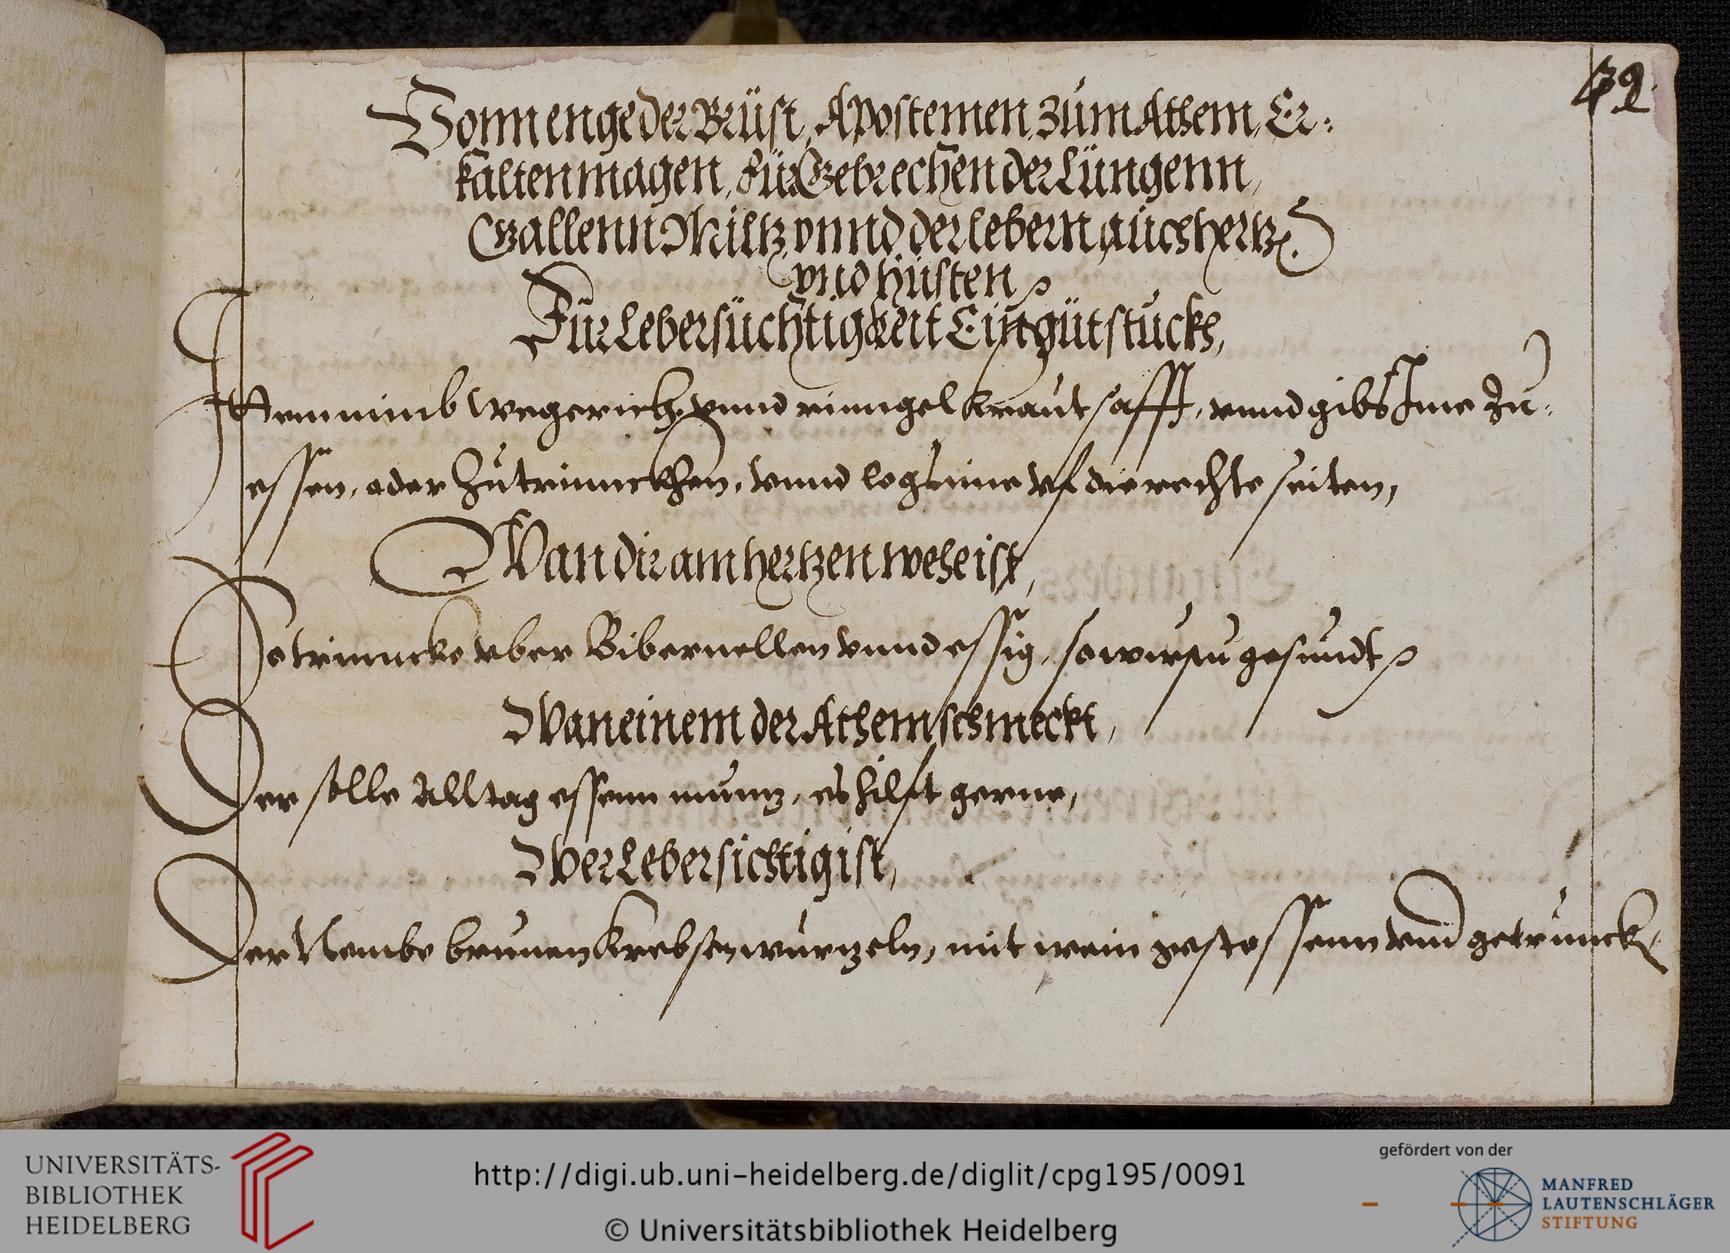 42
Vonn enge der Brüst, Apostemen, Zum Athem, Er-
kalten magen, Für Gebrechen der Lüngenn,
Gallenn Miltz vnnd der lebern, aüch hertz.
vnd Hüsten
Für Lebersüchtigkeit Ein güt stück,
Item nimb wegerich vnnd ringel kraut safft, vnnd gibs Ime zu-
essen, oder zu trinnckhen, vnnd leg inne vf die rechte seiten,
Wan dir am hertzen wehe ist,
So trinncke vber Bibernellen vnnd essig, so wirstu gesundt
Wan einem der Athem schmeckt,
Der solle all tag essenn muntz, es hilft gerne,
Wer Lebersichtig ist,
Der Nembe brunen krebsen wurtzeln, mit wein gestossenn vnd getrunck
UNIVERSITÄTS-
BIBLIOTHEK
HEIDELBERG
http://digi.ub.uni-heidelberg.de/diglit/cpg195/0091
© Universitätsbibliothek Heidelberg
gefördert von der
MANFRED
LAUTENSCHLÄGER
STIFTUNG